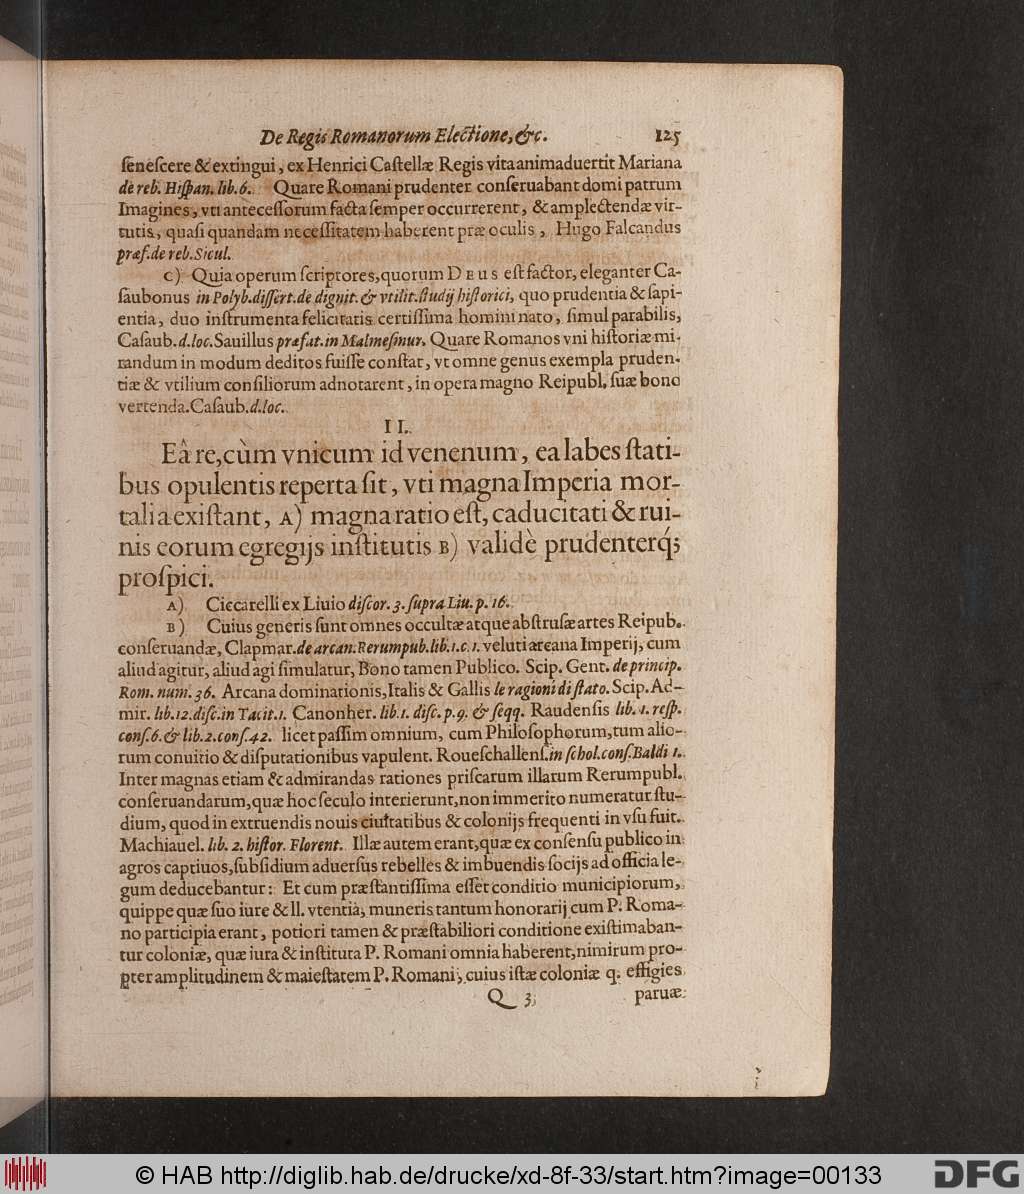 De Regis Romanorum Electione, &c. 125
ſeneſcere & extingui, ex Henrici Caſtellæ Regis vita animaduertit Mariana
de reb. Hiſpan. lib. 6. Quare Romani prudenter conſeruabant domi patrum
Imagines, vti anteceſſorum facta ſemper occurrerent, & amplectendæ vir-
tutis, quaſi quandam neceſſitatem haberent præ oculis, Hugo Falcandus
præf. de reb. Sicul.
C) Quia operum ſcriptores, quorum DEUS eſt factor, eleganter Ca-
ſaubonus in Polyb. diſſert. de dignit. & vtilit. ſtudij hiſtorici, quo prudentia & ſapi-
entia, duo inſtrumenta felicitatis certiſſima homini nato, ſimul parabilis,
Caſaub. d. loc. Sauillus præfat. in Malmeſinur. Quare Romanos vni hiſtoriæ mi-
randum in modum deditos fuiſſe conſtat, vt omne genus exempla pruden-
tiæ & vtilium conſiliorum adnotarent, in opera magno Reipubl. ſuæ bono
vertenda. Caſaub. d. loc.
II.
Eâ re, cùm vnicum id venenum, ea labes ſtati-
bus opulentis reperta ſit, vti magna Imperia mor-
talia exiſtant, A) magna ratio eſt, caducitati & rui-
nis eorum egregijs inſtitutis B) validè prudenterq́;
proſpici.
A) Ciccarelli ex Liuio diſcor. 3. ſupra Liu. p. 16.
B) Cuius generis ſunt omnes occultæ atque abſtruſæ artes Reipub.
conſeruandæ, Clapmar. de arcan. Rerumpub. lib. 1. c. 1. veluti arcana Imperij, cum
aliud agitur, aliud agi ſimulatur, Bono tamen Publico. Scip. Gent. de princip.
Rom. num. 36. Arcana dominationis, Italis & Gallis le ragioni di ſtato. Scip. Ad-
mir. lib. 12. diſc. in Tacit. 1. Canonher. lib. 1. diſc. p. 9. & ſeqq. Raudenſis lib. 1. reſp.
conſ. 6. & lib. 2. conſ. 42. licet paſſim omnium, cum Philoſophorum, tum alio-
rum conuitio & diſputationibus vapulent. Roueſchallenſ. in ſchol. conſ. Baldi 1.
Inter magnas etiam & admirandas rationes priſcarum illarum Rerumpubl.
conſeruandarum, quæ hoc ſeculo interierunt, non immerito numeratur ſtu-
dium, quod in extruendis nouis ciuitatibus & colonijs frequenti in vſu fuit.
Machiauel. lib. 2. hiſtor. Florent. Illæ autem erant, quæ ex conſenſu publico in
agros captiuos, ſubſidium aduerſus rebelles & imbuendis ſocijs ad officia le-
gum deducebantur: Et cum præſtantiſſima eſſet conditio municipiorum,
quippe quæ ſuo iure & ll. vtentia, muneris tantum honorarij cum P. Roma-
no participia erant, potiori tamen & præſtabiliori conditione exiſtimaban-
tur coloniæ, quæ iura & inſtituta P. Romani omnia haberent, nimirum pro-
pter amplitudinem & maieſtatem P. Romani, cuius iſtæ coloniæ q. effigies
Q 3 paruæ
© HAB http://diglib.hab.de/drucke/xd-8f-33/start.htm?image=00133 DFG